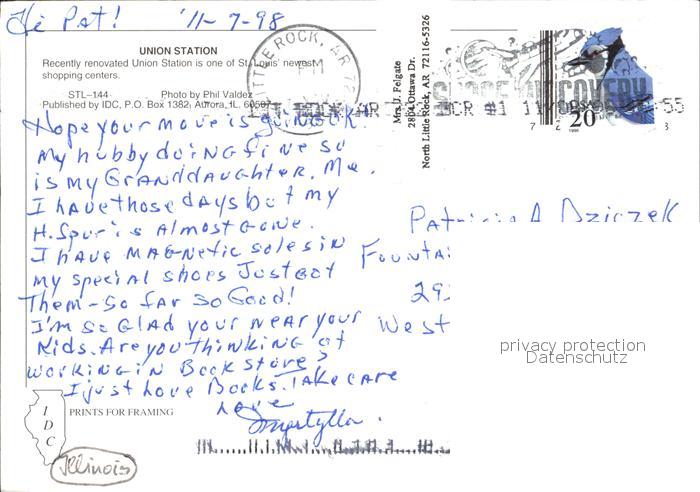 Hi Pat! 11-7-98
UNION STATION
Recently renovated Union Station is one of St. Louis' newest
shopping centers.
STL-144 Photo by Phil Valdez
Published by IDC, P.O. Box 1382, Aurora, IL 60507
Hope your move is going O.K.
my hubby doing fine so
is my Granddaughter. Me.
I have those days but my
H. Spur is Almost Gone.
I have Magnetic soles in
my special shoes Just Got
Them - So far so Good!
I'm so Glad your near your
Kids. Are you thinking of
working in Book stores?
I just Love Books. Take care
Love
Myrtylla.
PRINTS FOR FRAMING
IDC
Illinois
LITTLE ROCK, AR 72
PM
Mrs. J. Felgate
2804 Ottawa Dr.
North Little Rock, AR 72116-5326
SPACE DISCOVERY
AR MCR #1 11/08/98 55
20
1996
Patricia A Dzirzek
Fountai
29
West
privacy protection
Datenschutz